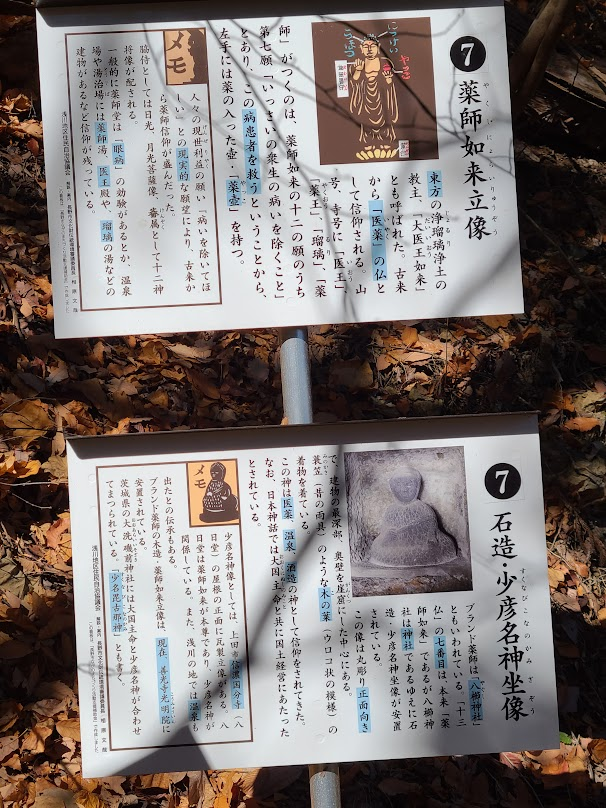 7
薬師如来立像
やくしにょらいりゅうぞう
にっけい
にくけつ
やっこ
東方の浄瑠璃浄土の
教主、「大医王如来」
とも呼ばれた。古来
から「医薬」の仏と
して信仰される。山
号、寺号に「医王」、
「薬王」、「瑠璃」、「薬
師」がつくのは、薬師如来の十二の願のうち
第七願「いっさいの衆生の病いを除くこと」
とあり、この病患者を救うということから、
左手には薬の入った壺・「薬壺」を持つ。
メモ
人々の現世利益の願い「病いを除いてほ
しい」との現実的な願望により、古来か
ら薬師信仰が盛んだった。
脇侍としては日光、月光菩薩像、眷属として十二神
将像が配される。
一般的に薬師堂は「眼病」の効験があるとか、温泉
場や湯治場には薬師湯、医王殿や、瑠璃の湯などの
建物があるなど信仰が残っている。
浅川地区住民自治協議会
7
石造・少彦名神坐像
すくなひこなのかみざぞう
ブランド薬師は「八櫛神社」
ともいわれている。「十三
仏」の七番目は、本来「薬
師如来」であるが八櫛神
社は神社であるゆえに石
造・少彦名神坐像が安置
されている。
この像は丸彫り正面向き
で、建物の最深部、奥壁を岩窟にした中心にある。
蓑笠(昔の雨具)のような木の葉(ウロコ状の模様)の
着物を着ている。
この神は医薬、温泉、酒造の神として信仰をされてきた。
なお、日本神話では大国主命と共に国土経営にあたった
とされている。
メモ
少彦名神像としては、上田市信濃国分寺(八
日堂)の屋根の正面に瓦製立像がある。八
日堂は薬師如来が本尊であり、少彦名神が
関係している。また、浅川の地では温泉も
出たとの伝承もある。
ブランド薬師の木造、薬師如来立像は、現在、善光寺光明院に
安置されている。
茨城県の大洗磯前神社には大国主命と少彦名神が合わせ
てまつられている。「少名毘古那神」とも書く。
浅川地区住民自治協議会